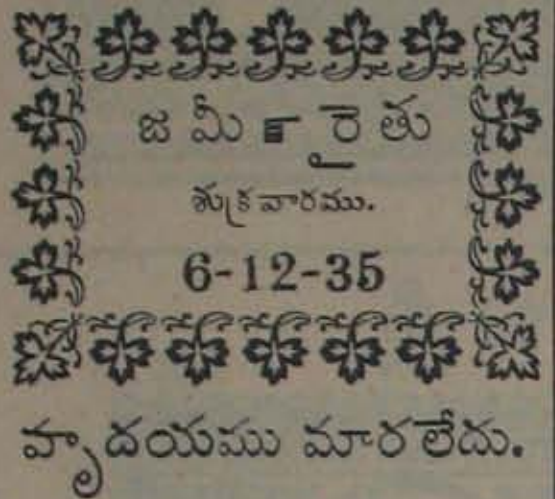 జమీన్ రైతు
శుక్రవారము.
6-12-35
హృదయము మారలేదు.